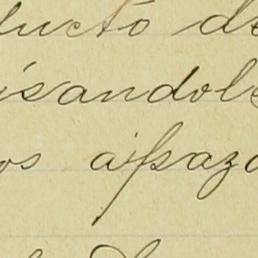 ducto de
isandole
os aplazo